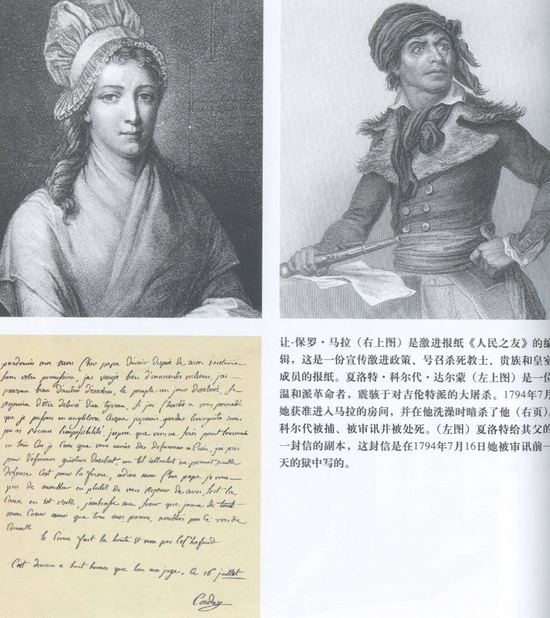 pardonnés moi mon Cher papa d'avoir disposé de mon existance
sans votre permission, j'ai vengé bien d'innocentes victimes, j'ai
prevenu bien d'autres désastres, le peuple un jour desabusé, se
rejouira d'être délivré d'un tyran, Si j'ai cherché a vous persuadé
que je passais en angleterre, cesque jesperais garder lincognito mais
jen ai reconu limpossibilité, jespere que vous ne serés point tourmenté
en tous Cas je Crois que vous auriés des defenseurs a Caen, jai pris
pour défenseur gustave Doulcet, un tel attentat ne permet nulle
defense Cest pour la forme, adieu mon Cher papa je vous
prie de moublier ou plutot de vous rejouir de mon sort la
Cause en est belle, jembrasse ma soeur que jaime de tout
mon Coeur ainsi que tous mes parens, noubliés pas ce vers de
Corneille
le Crime fait la honte et non pas l'echafaud
Cest demain a huit heures que lon me juge, ce 16 juillet
Corday
让-保罗·马拉（右上图）是激进报纸《人民之友》的编
辑，这是一份宣传激进政策、号召杀死教士、贵族和皇室
成员的报纸。夏洛特·科尔代·达尔蒙（左上图）是一位
温和派革命者，震骇于对吉伦特派的大屠杀。1794年7月
她获准进入马拉的房间，并在他洗澡时暗杀了他（右页）
科尔代被捕、被审讯并被处死。（左图）夏洛特给其父的
一封信的副本，这封信是在1794年7月16日她被审讯前一
天的狱中写的。